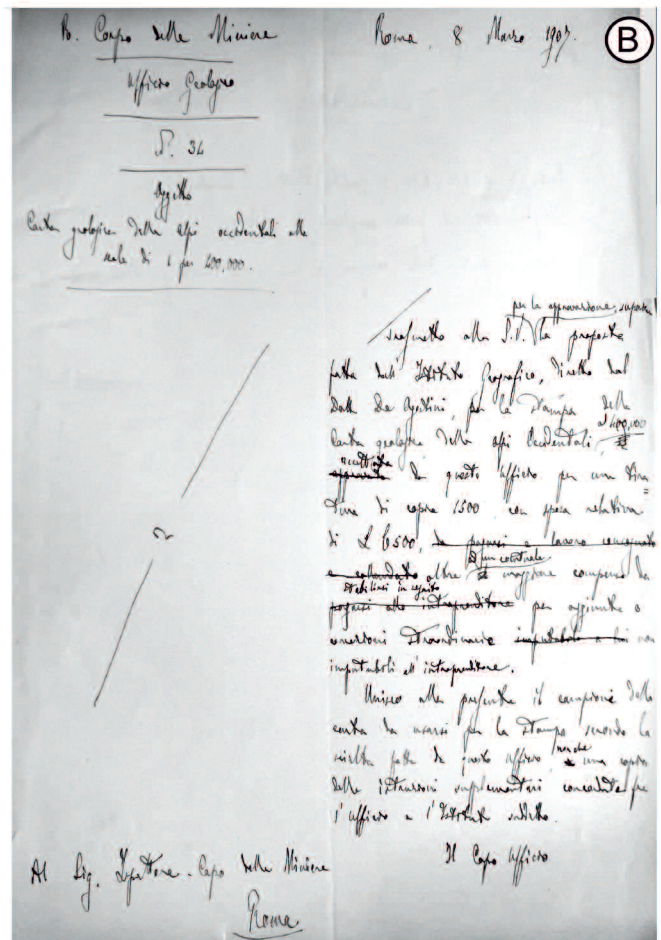 R. Corpo delle Miniere
Roma, 8 Marzo 1907.
B
Ufficio Geologico
N. 34
Oggetto
Carta geologica delle Alpi occidentali alla
scala di 1 per 400,000.
per la approvazione, superiore
trasmetto alla S.V. la proposta
fatta dall'Istituto Geografico, diretto dal
Dott. De Agostini, per la stampa della
Carta geologica delle Alpi Occidentali, al 400,000
accettata
approvata da questo ufficio per una tira=
tura di copie 1500 con spesa relativa
di L 6500, da pagarsi a lavoro consegnato
e collaudato oltre un eventuale maggiore compenso da
stabilirsi in seguito
pagarsi allo intraprenditore per aggiunte o
correzioni straordinarie imputabili a lui non
imputabili all'intraprenditore.
Unisco alla presente il campione della
carta da usarsi per la stampa secondo la
scelta fatta da questo ufficio, nonche una copia
delle istruzioni supplementari concordate fra
l'ufficio e l'Istituto suddetto.
Il Capo Ufficio
Al Sig. Ispettore-Capo delle Miniere
Roma